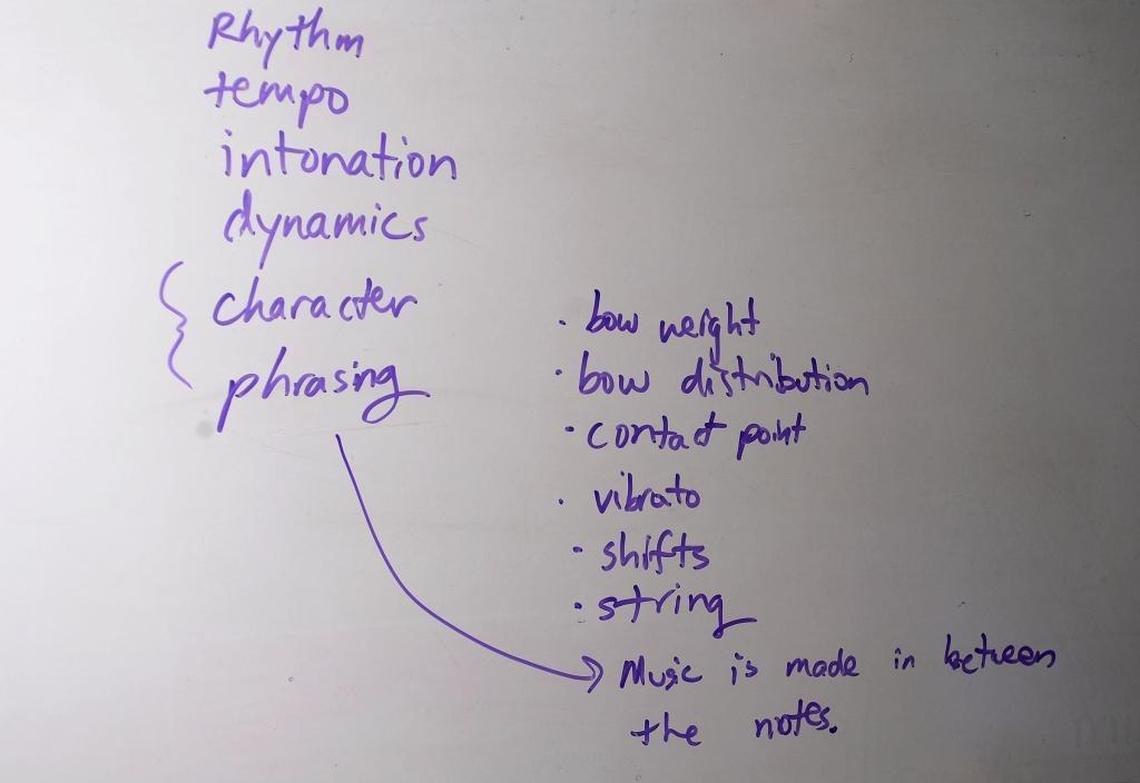 Rhythm
tempo
intonation
dynamics
character
phrasing
· bow weight
· bow distribution
· contact point
· vibrato
· shifts
· string
Music is made in between
the notes.